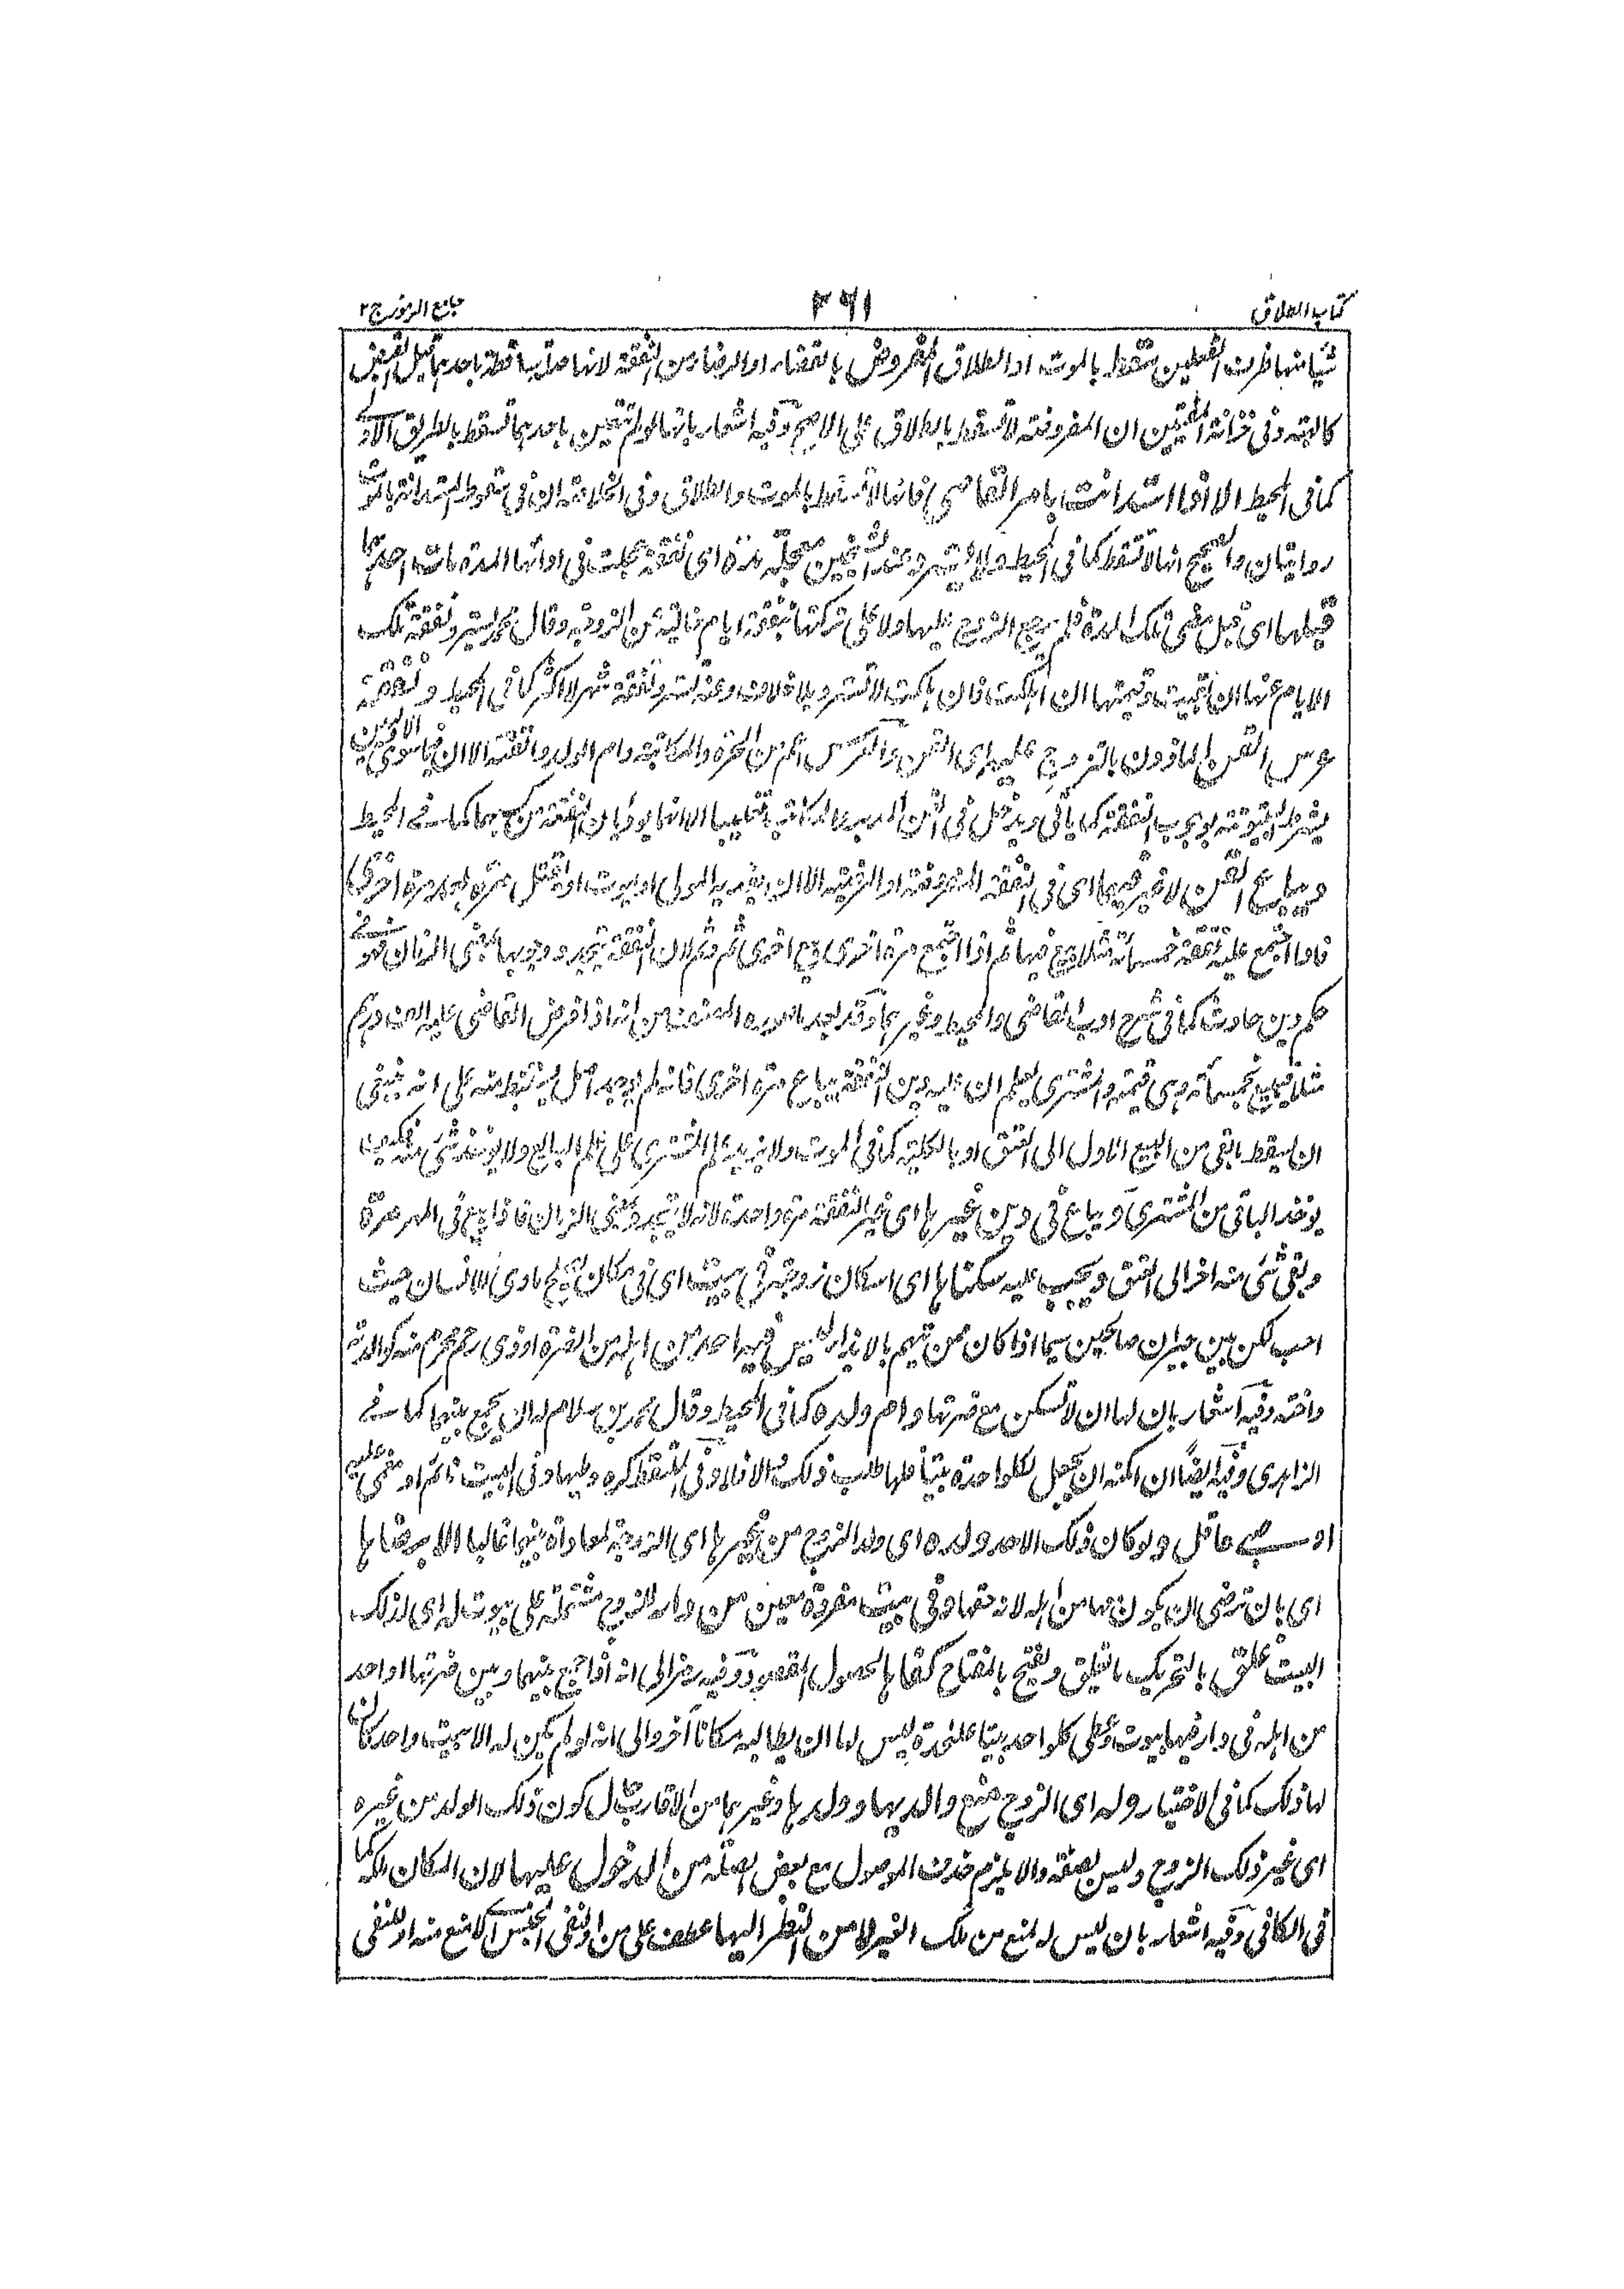 كتاب الطلاق ٣٦١ جامع الرموز ج٢
شيئا منها ظرف الفعلين سقط بالموت او الطلاق المفروض بالقضاء او الرضا من النفقة لانها صلة ساقطة باحدهما قبل القبض
كالهبة وفى خزانة المفتين ان المفروضة لا تسقط بالطلاق على الاصح وفيه اشعار بانها لو لم تتعين باحدهما تسقط بالطريق الاولى
كما فى المحيط الا اذا استدانت بامر القاضى فانها لا تسقط بالموت والطلاق وفى الخلاصة ان فى سقوط المستدانة بالموت
روايتان والصحيح انها لا تسقط كما فى المحيط ولا يسترد عند الشيخين معجلة مدة اى نفقة عجلت فى اوائلها المدة مات احدهما
قبلها اى قبل مضى تلك المدة فلم يرجع الزوج عليها ولا على تركتها بنفقة ايام خالية عن الزوجية وقال محمد يسترد نفقة تلك
الايام عنها ان بقيت وقيمتها ان اهلكت فان هلكت لا تسترد بلا خلاف وعنه تسترد نفقة شهر لا اكثر كما فى المحيط و نفقة
عرس القن الماذون بالتزوج عليه اى القن والعرس اعم من الحرة والمكاتبة وام الولد والقنة الا ان فيما سوى الاوليين
يشترط التبوئة بوجوب النفقة كما ياتى ويدخل فى القن المدبر والمكاتب تغليبا الا انهما يوديان النفقة من كسبهما كما فى المحيط
ويباع القن لا غير فيها اى فى النفقة المفروضة او المرضية الا ان يفديه المولى او يموت او يقتل مرة بعد مرة اخرى
فاذا اجتمع عليه نفقة خمسمائة مثلا بيع فيها ثم اذا اجتمع مرة اخرى بيع اخرى ثم وثم لان النفقة يتجدد وجوبها بمضى الزمان فهو فى
حكم دين حادث كما فى شرح ادب القاضى والمحيط وغيرهما وقد بعد ما صوره المصنف من انه اذا فرض القاضى عليه الف درهم
مثلا فبيع بخمسمائة وهى قيمته والمشترى يعلم ان عليه دين النفقة يباع مرة اخرى فانه لم يوجد اصل يستنبط منه على انه ينبغى
ان يسقط ما بقى من البيع الاول الى العتق او بالكلية كما فى الموت ولا يزيد علم المشترى على علم البايع ولا يوخذ شئ منه فكيف
يوخذ الباقى من المشترى ويباع فى دين غيرها اى غير النفقة مرة واحدة لانه لا يتجدد بمضى الزمان فاذا بيع فى المهر مرة
وبقى شئ منه اخر الى العتق ويجب عليه سكناها اى اسكان زوجته فى بيت اى فى مكان يصلح ماوى للانسان حيث
احب لكن بين جيران صالحين سيما اذا كان ممن يتهم بالايذاء ليس فيه احد من اهله من الضرة او ذى رحم محرم منه كوالدته
واخته وفيه اشعار بان لها ان لا تسكن مع ضرتها وام ولده كما فى المحيط وقال محمد بن سلام له ان يجمع بينهما كما فى
الزاهدى وفيه ايضا ان امكنه ان يجعل لكل واحدة بيتا فلها طلب ذلك والا فلا وفى الملتقط كره وطيها وفى البيت نائم او مغمى عليه
او صبى عاقل ولو كان ذلك الاحد ولده اى ولد الزوج من غيرها اى الزوجة لمعاداة بينهما غالبا الا برضاها
اى بان ترضى ان يكون معها من اهله لانه حقها وفى بيت مفردة معين من دار الزوج مشتملة على بيوت له اى لذلك
البيت غلق بالتحريك ما يغلق ويفتح بالمفتاح كفاها لحصول المقصود وفيه رمز الى انه اذا جمع بينها وبين ضرتها او احد
من اهله فى دار فيها بيوت وعطى كل واحد بيتا على حدة ليس لها ان يطالبه مكانا آخر والى انه لو لم يكن له الا بيت واحد كان
لها ذلك كما فى الاختيار وله اى الزوج منع والديها وولدها وغيرهما من الاقارب حال كون ذلك الولد من غيره
اى غير ذلك الزوج وليس بصفة والا يلزم حذف الموصول مع بعض الصلة من الدخول عليها لان المكان ملكه كما
فى الكافى وفيه اشعار بان ليس له المنع من ملك الغير لا من النظر اليها عطف على من او لنفى الجنس اى لا منع منه او للنفى